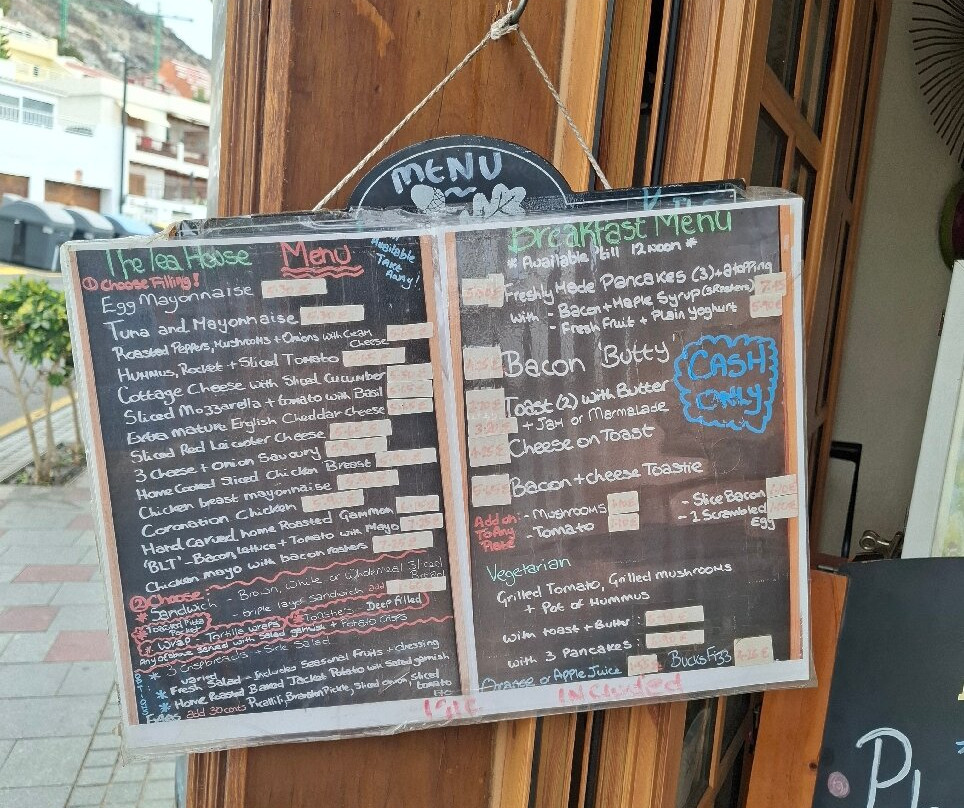 MENU
The Tea House Menu
Available
Take
Away!
① Choose Filling!
Egg Mayonnaise
Tuna and Mayonnaise
Roasted Peppers, Mushrooms + Onions with Cream
Cheese
Hummus, Rocket + Sliced Tomato
Cottage Cheese with Sliced Cucumber
Sliced Mozzarella + tomato with Basil
Extra mature English Cheddar cheese
Sliced Red Leicester Cheese
3 Cheese + Onion Savoury
Home Cooked Sliced Chicken Breast
Chicken breast mayonnaise
Coronation Chicken
Hard carved, home Roasted Gammon
'BLT' - Bacon, lettuce + Tomato with Mayo
Chicken mayo with bacon rashers
② Choose:
* Sandwich - Brown, White or Wholemeal Sliced
Bread
- triple layer sandwich add
* Toasted Pitta
Pocket
* Toasties - Deep filled
* Wrap - Tortilla wraps
Any of above served with salad garnish + Potato Crisps
3 crispbreads + Side Salad
* Fresh Salad - Includes Seasonal Fruits + dressing
* Home Roasted Baked Jacket Potato with Salad garnish
Extras add 30 cents Picallili, Branston Pickle, Sliced onion, Sliced
tomato
etc
Breakfast Menu
* Available till 12 noon *
Freshly Made Pancakes (3) + a topping
with - Bacon + Maple Syrup (3 Rashers)
- Fresh Fruit + Plain Yoghurt
Bacon 'Butty'
CASH
Only
Toast (2) with Butter
+ Jam or Marmalade
Cheese on Toast
Bacon + cheese Toastie
Add on
To Any
Plate
- Mushrooms
- Tomato
- Slice Bacon
- 1 Scrambled
Egg
Vegetarian
Grilled Tomato, Grilled mushrooms
+ Pot of Hummus
with toast + Butter:
with 3 Pancakes:
Orange or Apple Juice
Bucks Fizz
IGIC included